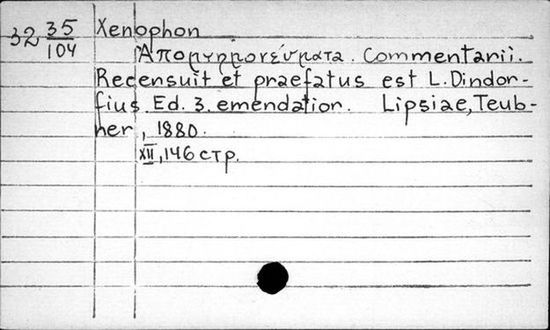 32 35/104 Xenophon
Ἀπομνημονεύματα. Commentarii.
Recensuit et praefatus est L. Dindor-
fius. Ed. 3. emendation. Lipsiae, Teub-
ner, 1880.
XII, 146 стр.